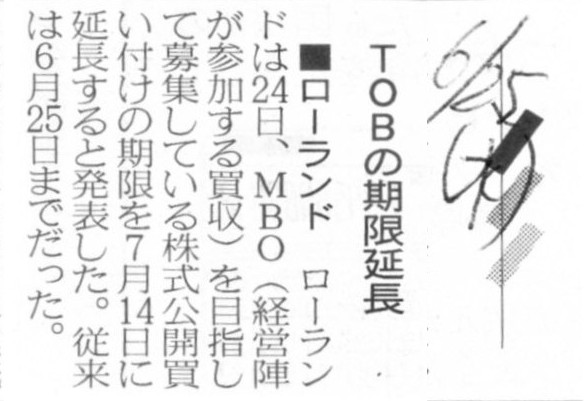 6/25
(水)
TOBの期限延長
■ローランド ローラン
ドは24日、MBO（経営陣
が参加する買収）を目指し
て募集している株式公開買
い付けの期限を7月14日に
延長すると発表した。従来
は6月25日までだった。